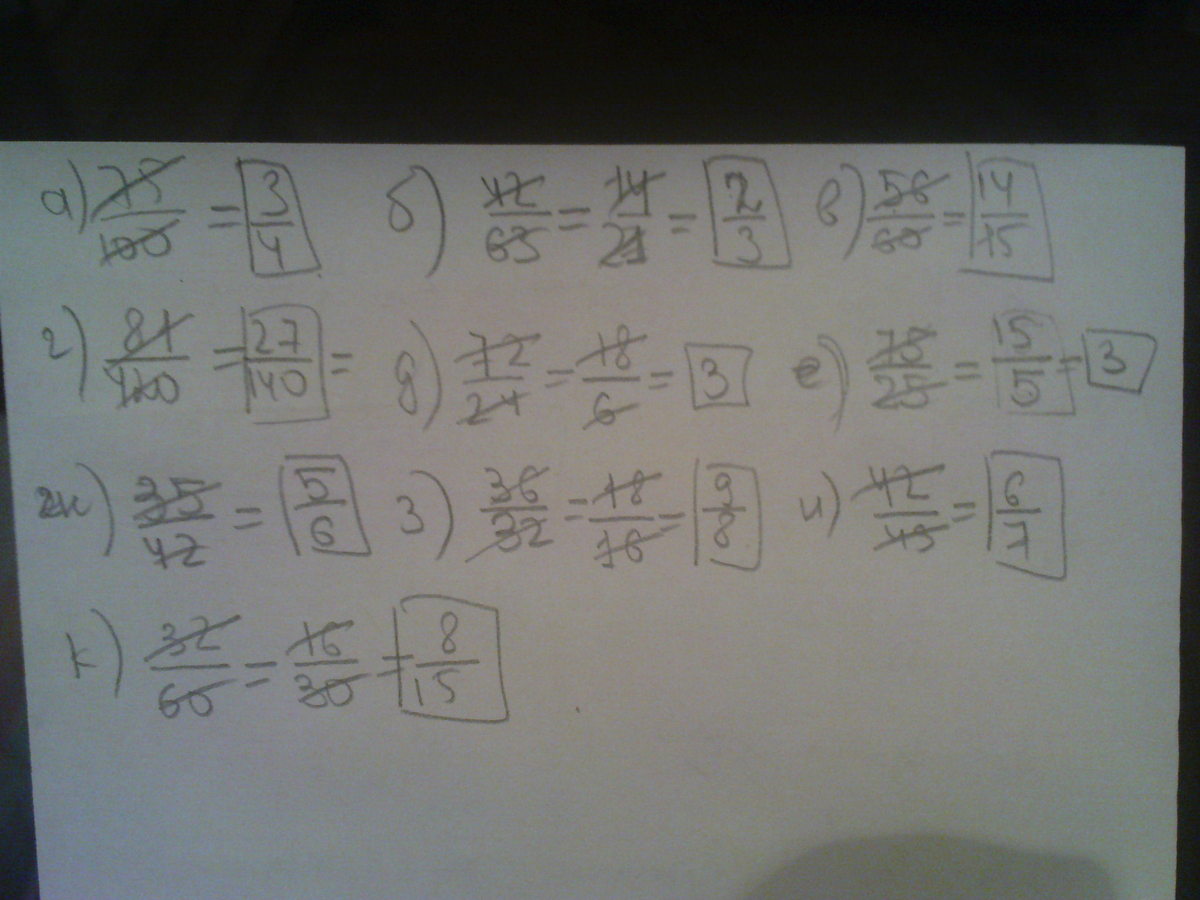 а) 75/100 = 3/4 б) 42/63 = 14/21 = 2/3 в) 56/60 = 14/15
г) 81/420 = 27/140 = д) 72/24 = 18/6 = 3 е) 75/25 = 15/5 = 3
ж) 35/42 = 5/6 з) 36/32 = 18/16 = 9/8 и) 42/49 = 6/7
к) 32/60 = 16/30 = 8/15